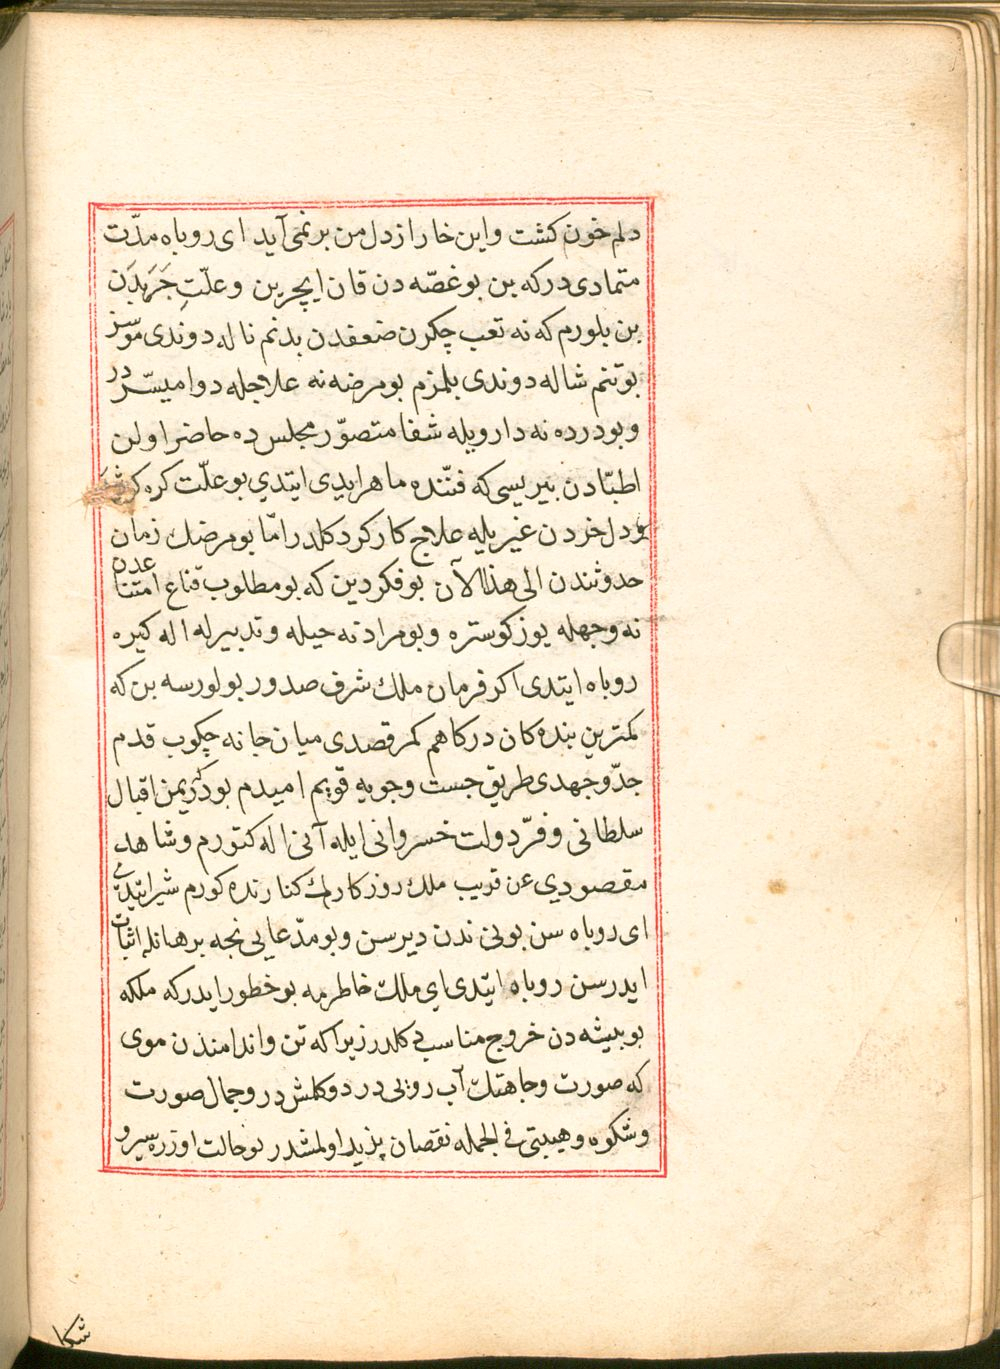 دلم خون کشت و این خار از دل من بر نمی آید ای روباه مدّت
متمادی در که بن بو غصّه دن قان ایچرین و علّتِ جَرَبدَن
بن بلورم که نه تعب چکرن ضعفدن بدنم ناله دوندی موسز
بو تنم شاله دوندی بلمزم بو مرضه نه علاجله دوا میسّر در
و بو درده نه دارویله شفا متصوّر مجلس ده حاضر اولن
اطبّادن بیریسی که فنّنده ماهر ایدی ایتدی بو علّت کره کوش
و دل خردن غیریله علاج کارکر دکلدر امّا بو مرضك زمان
حدوثندن الی هذا الآن بو فکردین که بو مطلوب قناع امتناعدن
نه وجهله یوز کوستره و بو مراد نه حیله و تدبیرله اله کیره
روباه ایتدی اکر فرمان ملك شرف صدور بولورسه بن که
کمترین بنده کان درکاهم کمر قصدی میان جانه چکوب قدم
جدّ و جهدی طریق جست وجویه قویم امیدم بودرکه یمن اقبال
سلطانی و فرّ دولت خسروانی ایله آنی اله کتورم و شاهد
مقصودی عن قریب ملك روزکارك کنارنده کورم شیر ایتدی
ای روباه سن بونی ندن دیرسن و بو مدّعایی نجه برهانله اثبات
ایدرسن روباه ایتدی ای ملك خاطرمه بو خطور ایدر که ملکه
بو بیشه دن خروج مناسب دکلدر زیرا که تن و اندامندن موی
که صورت وجاهتك آب رویی در دوکلمش در و جمال صورت
و شکوه و هیبتی فی الجمله نقصان پذیر اولمشدر بو حالت اوزره سیر و
شکا